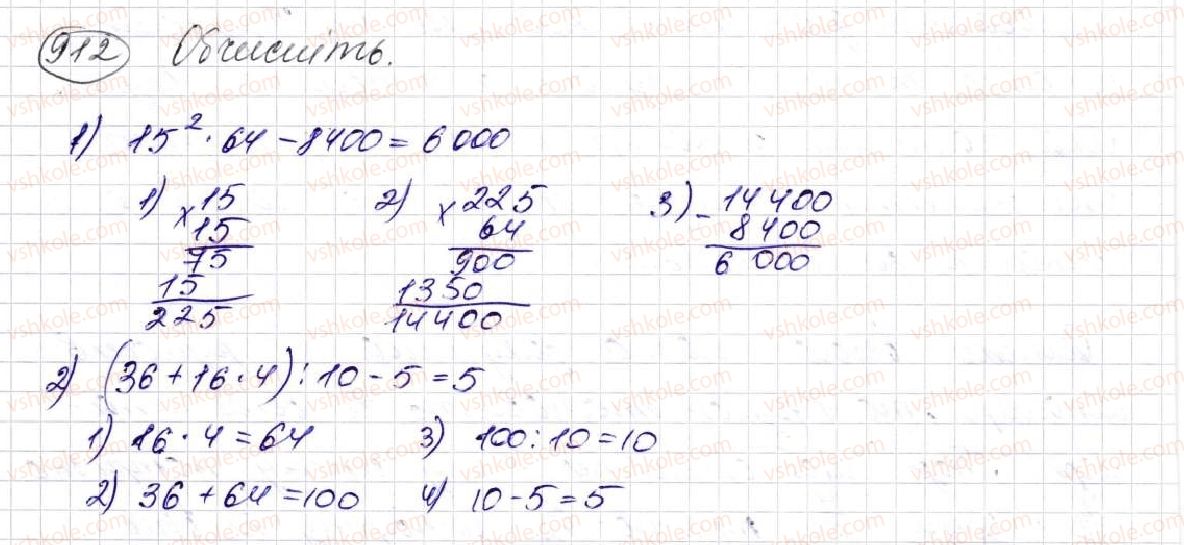 912 Обчисліть.
1) 15² · 64 - 8400 = 6000
1) × 15
15
75
15
225
2) × 225
64
900
1350
14400
3) - 14400
8400
6 000
2) (36 + 16 · 4) : 10 - 5 = 5
1) 16 · 4 = 64
3) 100 : 10 = 10
2) 36 + 64 = 100
4) 10 - 5 = 5
vshkole.com